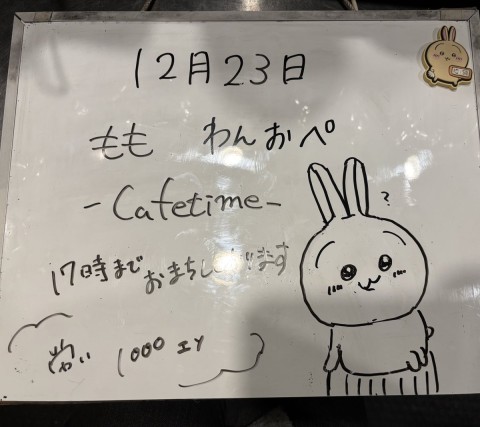 12月23日
もも わんおぺ
-Cafetime-
17時まで おまちしてます
?
1000